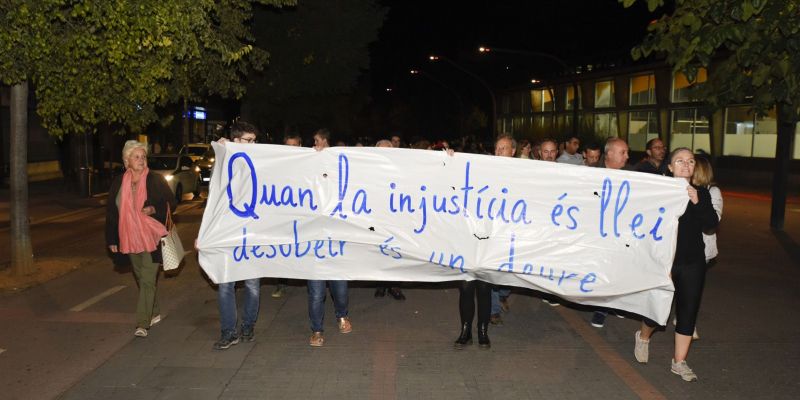 Quan la injustícia és llei
desobeir és un deure